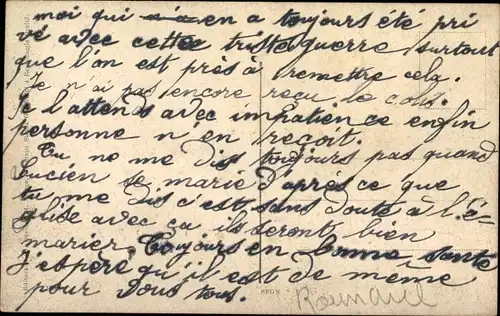 moi qui en a toujours été pri
vé avec cette triste guerre surtout
que l'on est près à remettre cela.
Je n'ai pas encore reçu le colis.
Je l'attends avec impatience enfin
personne n en reçoit.
Tu ne me dis toujours pas quand
Lucien se marie d'après ce que
tu me dis c'est sans doute à l'é-
glise avec ça ils seront bien
marier. Toujours en bonne santé
J'espère qu'il est de même
pour vous tous.